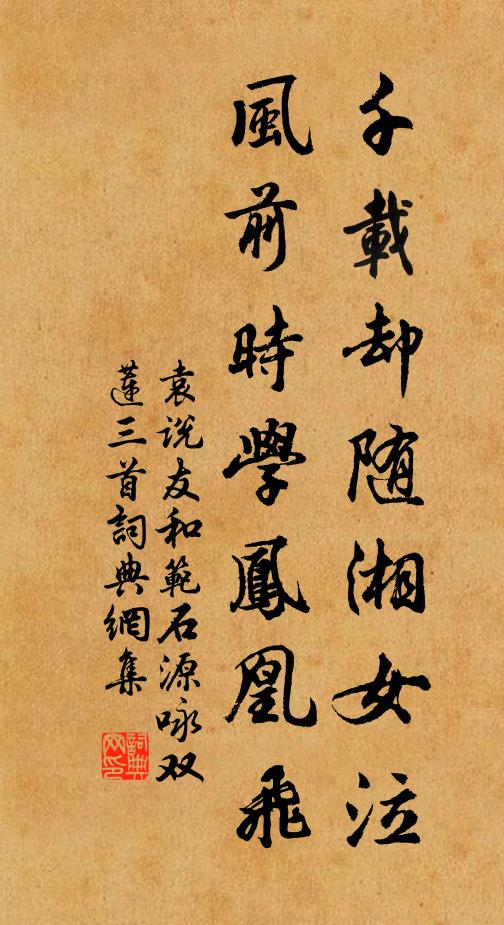 千載却随湘女泣
風前時學鳳凰飛
袁说友和範石源咏双
蓮三首詞典網集
詞典网印